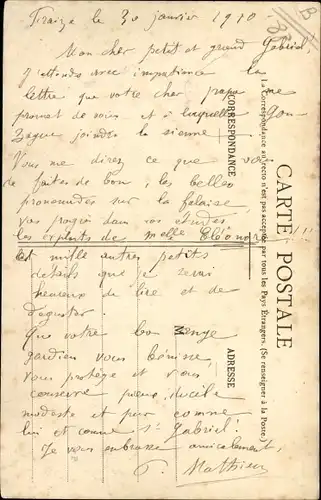 Fraize le 30 janvier 1910
Mon cher petit et grand Gabriel
J'attends avec impatience la
lettre que votre cher papa me
promet de vous et à laquelle Gon
zague joindra la sienne
Vous me direz ce que vous
faites de bon, les belles
promenades sur la falaise
vos progrès dans vos études
les exploits de Melle Eléonore
Et mille autres petits
détails que je serai
heureux de lire et de
déguster.
Que votre bon ange
gardien vous bénisse
vous protège et vous
conserve pieux docile
modeste et pur comme
lui et comme St Gabriel!
Je vous embrasse amicalement,
Mathieu
CORRESPONDANCE
ADRESSE
La Correspondance au recto n'est pas acceptée par tous les Pays Étrangers. (Se renseigner à la Poste.)
CARTE POSTALE